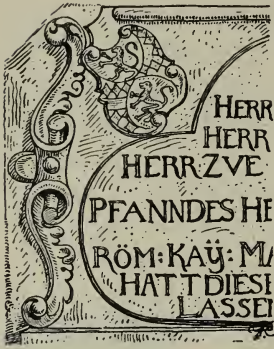 HERR
HERR
HERR ZVE
PFANNDES HE
RÖM: KAŸ: MA
HATT DIESE
LASSEN